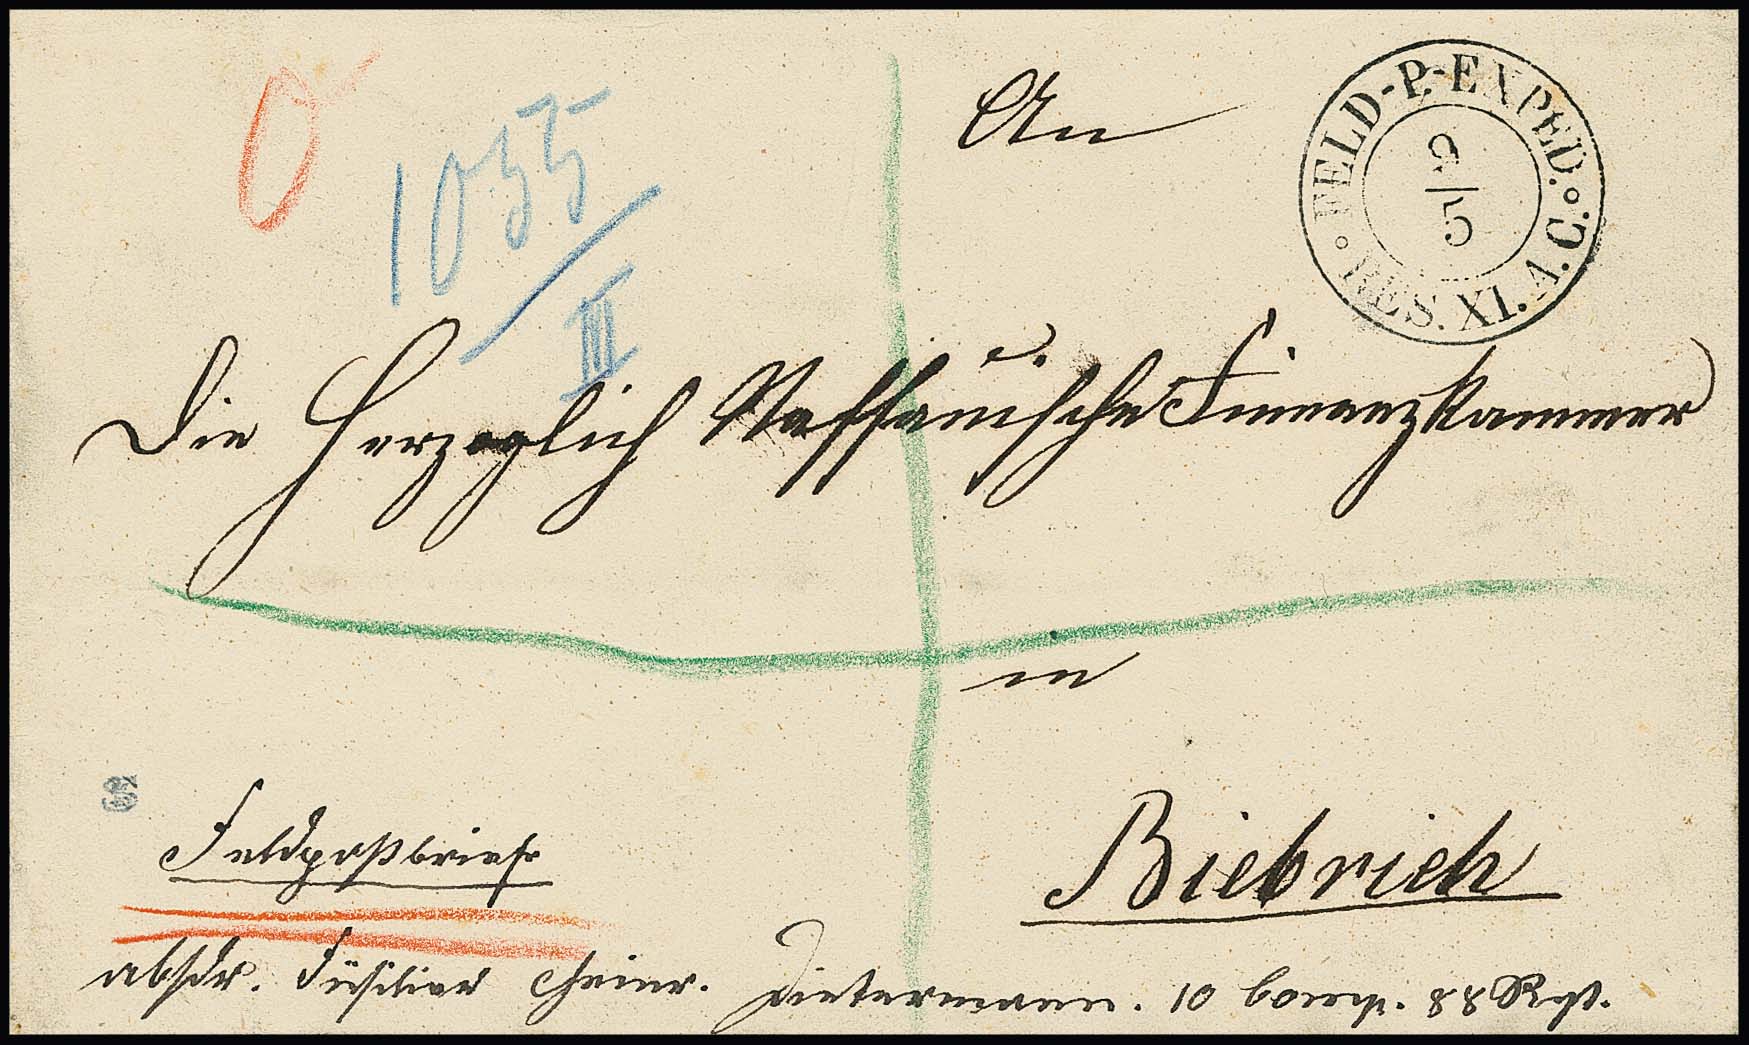 An
FELD-P.-EXPED.
9/5
RES. XI. A. C.
1055/III
Die Herzoglich Nassauische Finanzkammer
in
Biebrich
Feldpostbrief
absdr. Füsilier Heinr. Dietermann. 10 Comp. 88 Rgt.